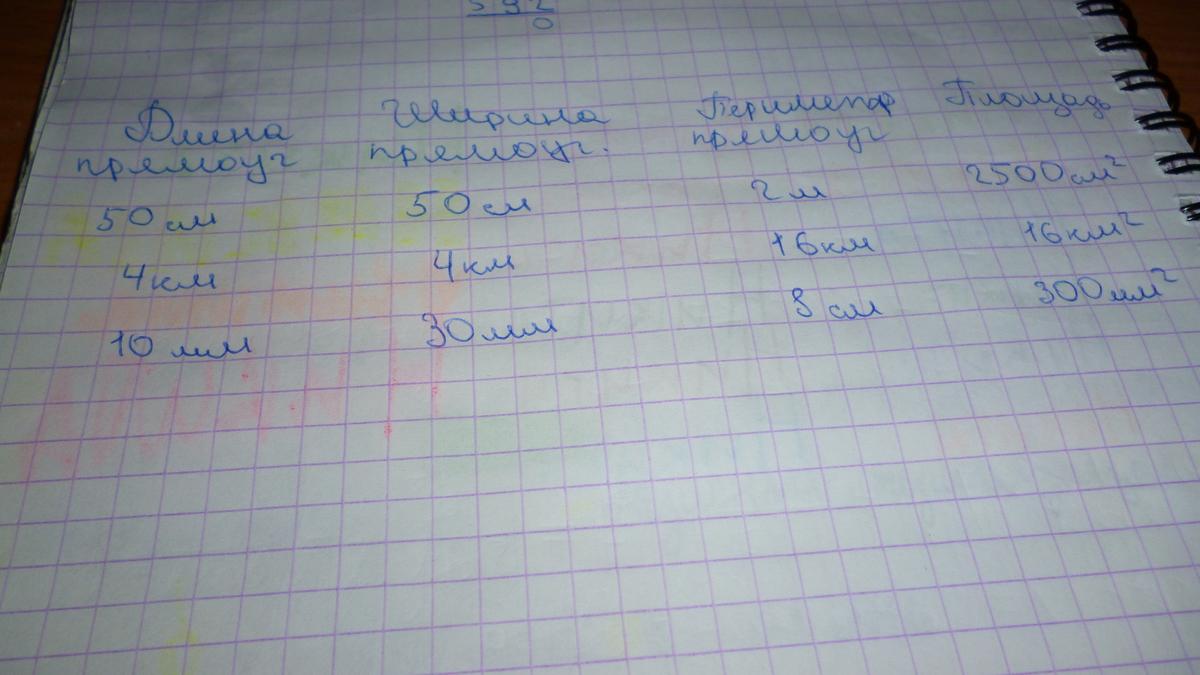 592
0
Длина Ширина Периметр Площадь
прямоуг прямоуг. прямоуг
50 см 50 см 2 м 2500 см²
4 км 4 км 16 км 16 км²
10 мм 30 мм 8 см 300 мм²